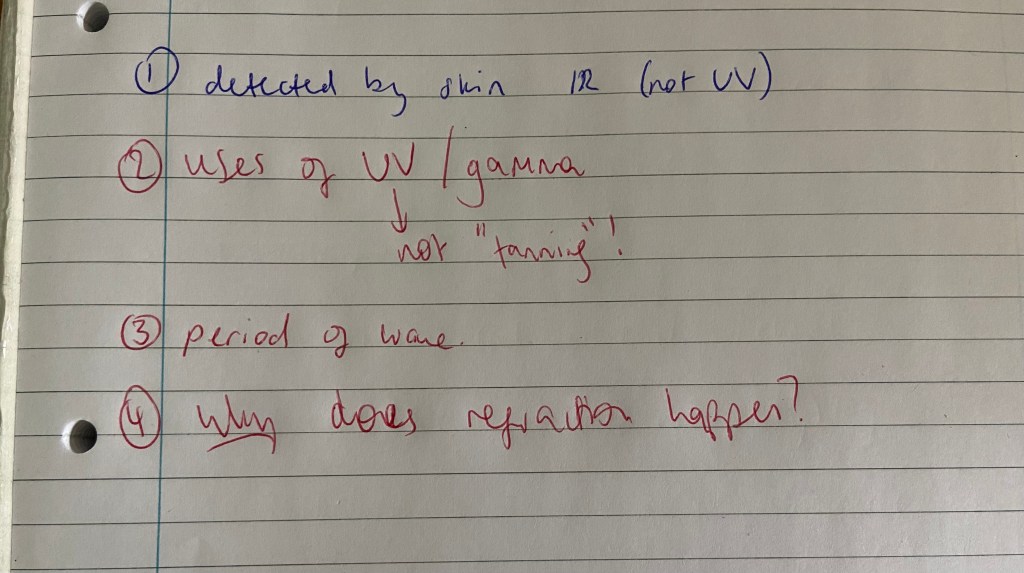 ① detected by skin IR (not UV)
② uses of UV / gamma
↓
not "tanning"!
③ period of wave.
④ Why does refraction happen?